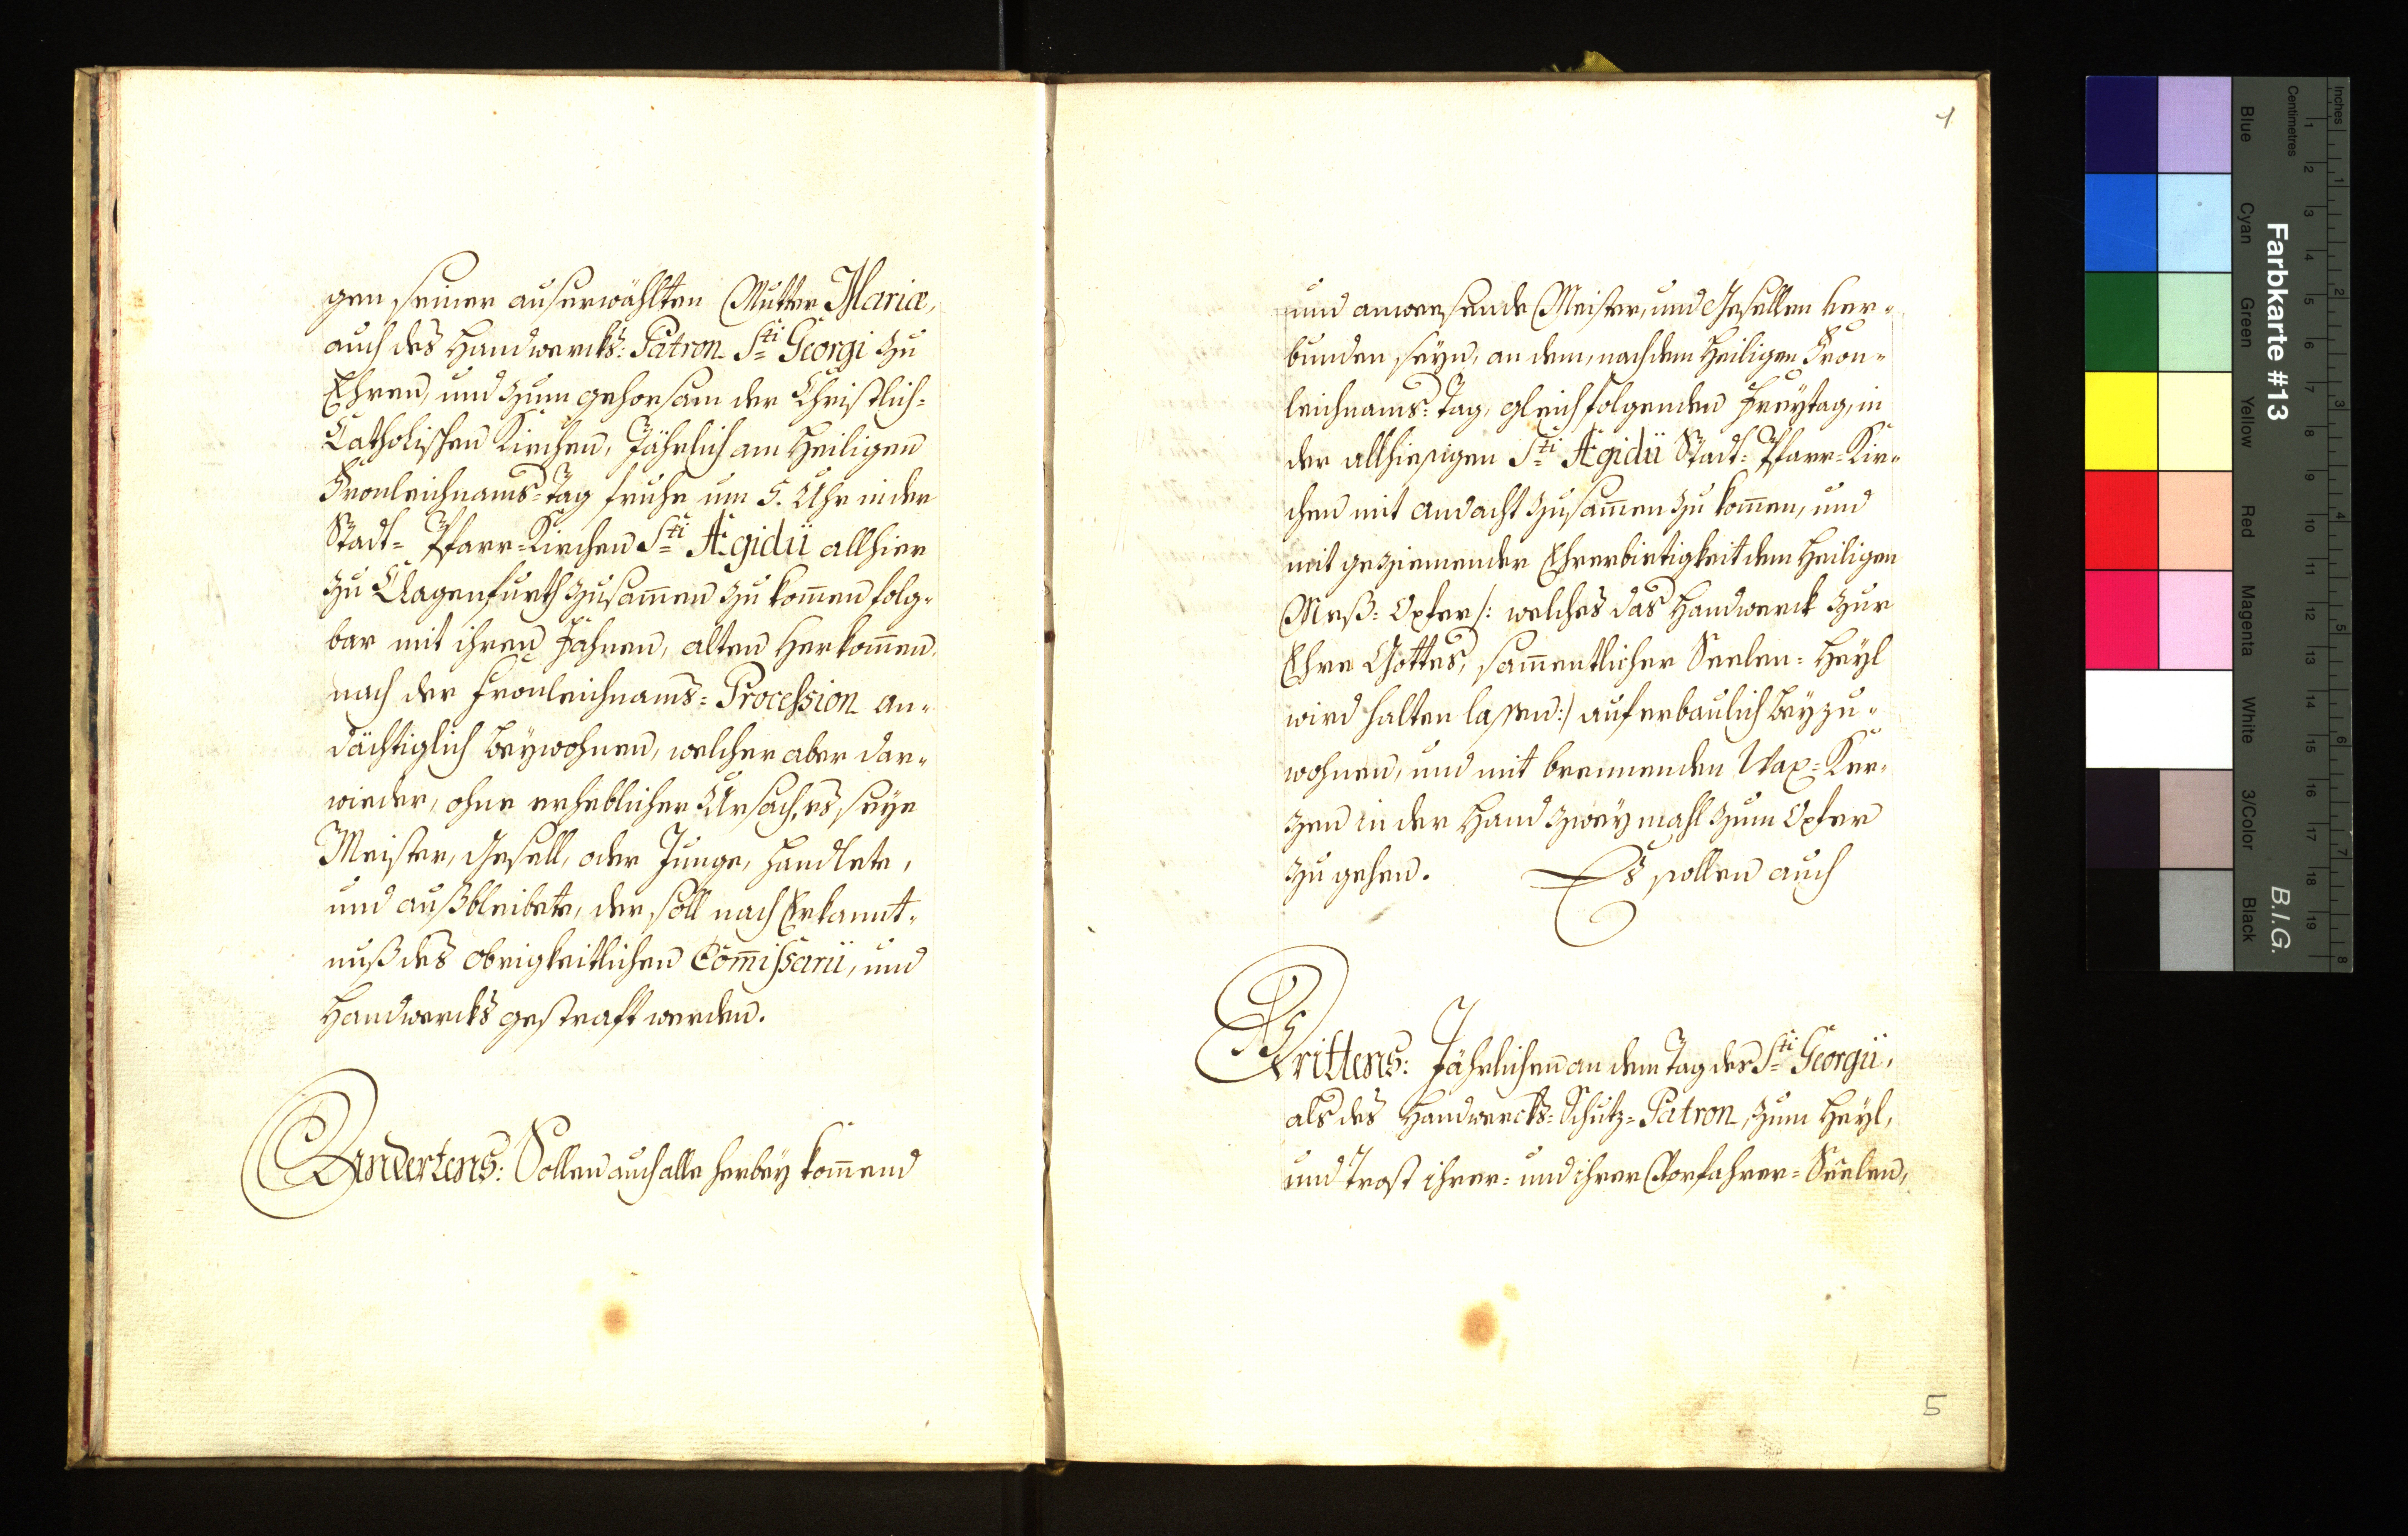 gen seiner auserwählten Mutter Mariæ,
auch des Handwercks: Patron Sti Georgi zu
Ehren, und zum gehorsam der Christlich=
Catholischen Kirchen, Jährlich am Heiligen
Fronleichnams=Tag fruhe um 5. Uhr in der
Stadt= Pfarr=Kirchen Sti Ægidii allhier
zu Clagenfurth zusam̄en zu kom̄en folg=
bar mit ihren Fahnen, alten Herkom̄en
nach der Fronleichnams=Procession an=
dächtiglich beywohnen, welcher aber dar=
wieder, ohne erheblicher Ursach, es seye
Meister, Gesell, oder Junge, handlete,
und außbleibete, der soll nach Erkannt=
nuß des obrigkeitlichen Com̄issarii, und
Handwercks gestraft werden.
Andertens: Sollen auch alle herbey kom̄end
4
und anwesende Meister, und Gesellen ver=
bunden seyn, an dem, nach dem Heiligen Fron=
leichnams=Tag, gleich folgenden Freytag, in
der allhiesigen Sti Ægidii Stadt=Pfarr=Kir=
chen mit andacht zusam̄en zu kom̄en, und
mit geziemender Ehrerbietigkeit dem Heiligen
Meß=Opfer /: welches das Handwerck zur
Ehre Gottes, sam̄entlicher Seelen=Heyl
wird halten lassen :/ auferbaulich beyzu=
wohnen, und mit brennenden Wax=Ker=
zen in der Hand zweymahl zum Opfer
zu gehen. Es sollen auch
Drittens: Jährlichen an dem Tag des Sti Georgii,
als des Handwercks=Schutz=Patron, zum Heyl,
und Trost ihrer= und ihrer Vorfahrer=Seelen,
5
Inches
Centimetres
1 2 3 4 5 6 7 8
1 2 3 4 5 6 7 8 9 10 11 12 13 14 15 16 17 18 19
Farbkarte #13
B.I.G.
Blue
Cyan
Green
Yellow
Red
Magenta
White
3/Color
Black